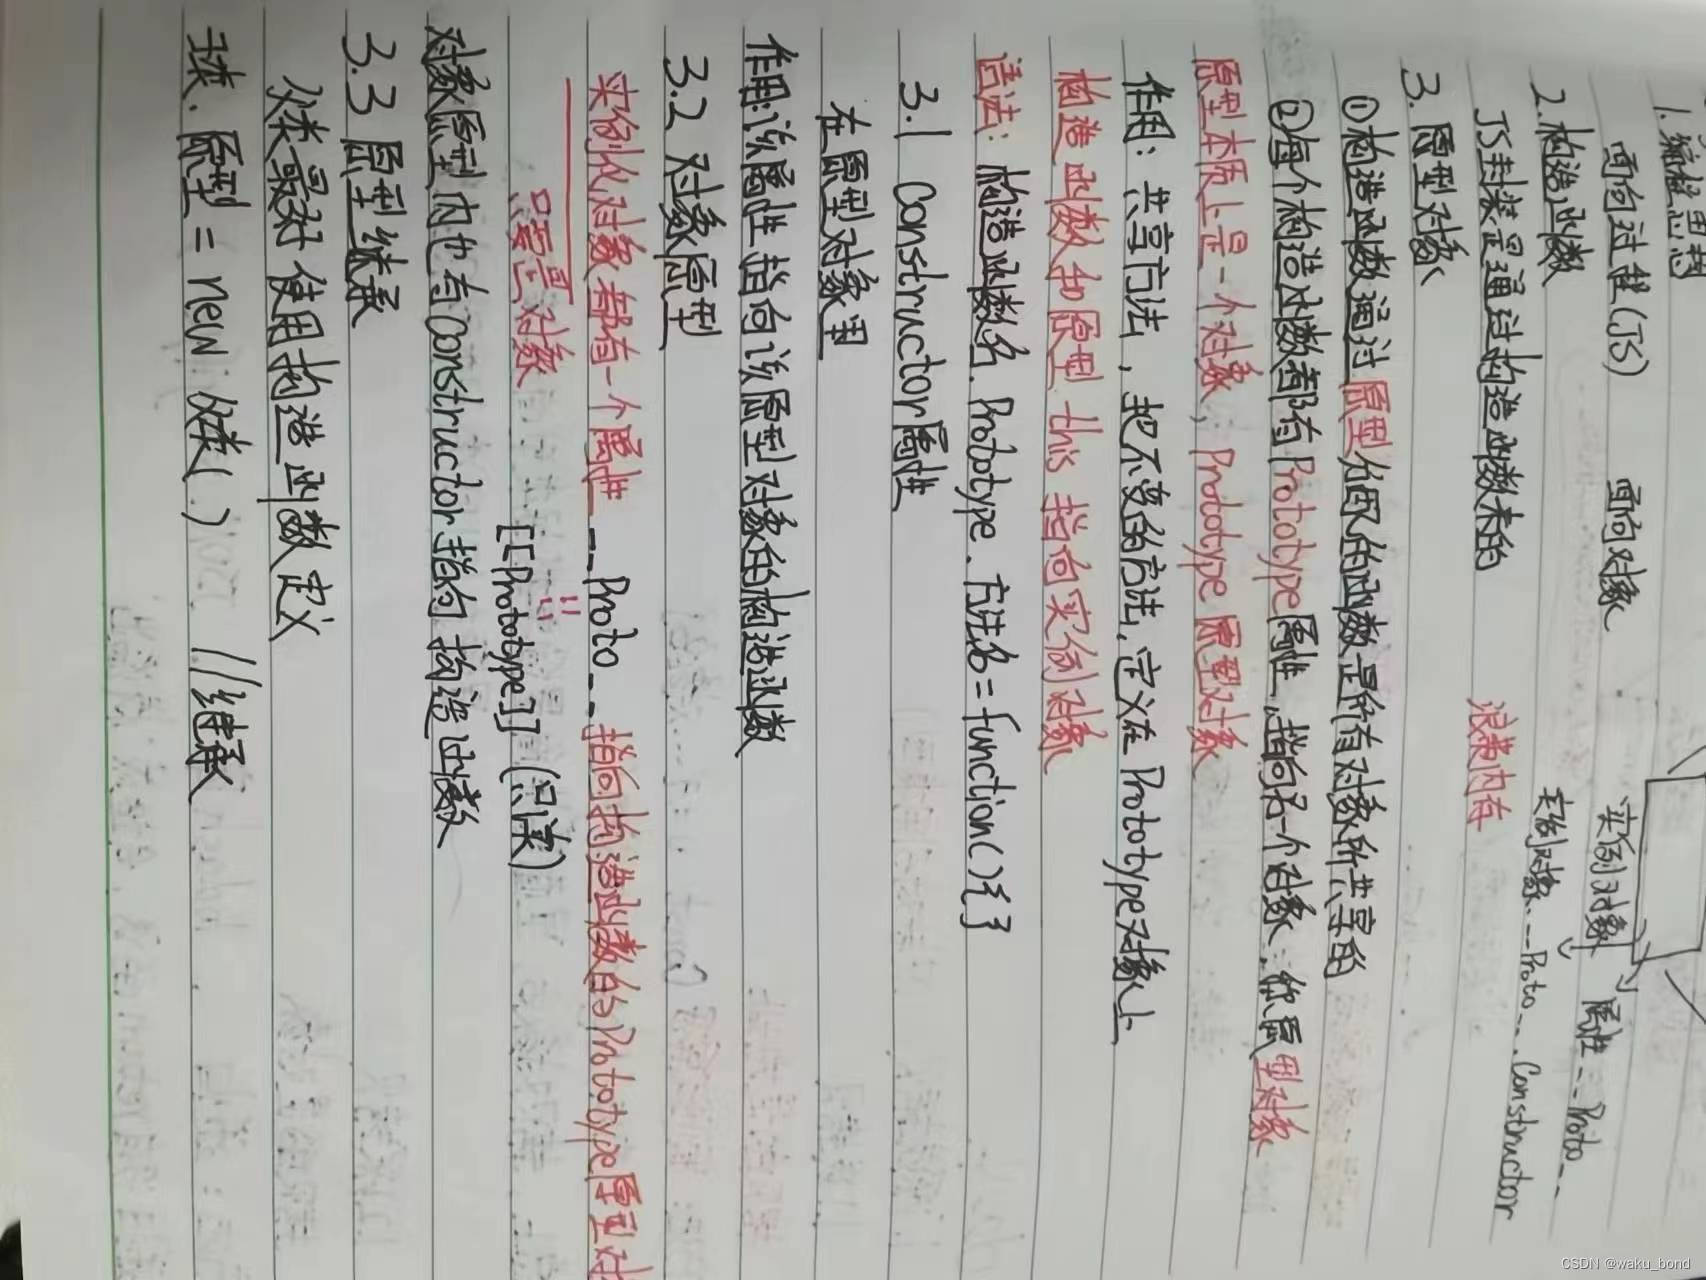 1. 编程思想
面向过程(JS) 面向对象 实例对象 属性__Proto__
2. 构造函数 实例对象.__Proto__.Constructor
JS封装是通过构造函数来的 浪费内存
3. 原型对象
①构造函数通过原型分配的函数是所有对象所共享的
②每个构造函数都有Prototype属性,指向另一个对象,称原型对象
原型本质上是一个对象,Prototype原型对象
作用:共享方法,把不变的方法,定义在Prototype对象上
构造函数和原型this指向实例对象
语法:构造函数名.Prototype.方法名=function(){}
3.1 Constructor属性
在原型对象里
作用:该属性指向该原型对象的构造函数
3.2 对象原型
实例化对象都有一个属性__Proto__指向构造函数的Prototype原型对
只要是对象 [[Prototype]](只读)
对象原型内也有Constructor指向构造函数
3.3 原型继承
父类最好使用构造函数定义
子类.原型=new 父类() //继承
CSDN @waku_bond